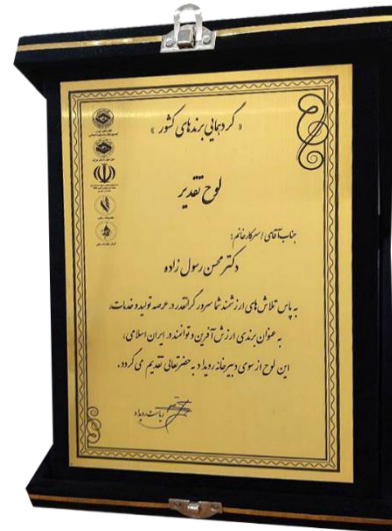 « گردهمایی برندهای کشور »
لوح تقدیر
جناب آقای / سرکار خانم:
دکتر محسن رسول زاده
به پاس تلاش های ارزشمند شما سرور گرانقدر در عرصه تولید و خدمات،
به عنوان برندی ارزش آفرین و توانمند در ایران اسلامی،
این لوح از سوی دبیرخانه رویداد به حضرتعالی تقدیم می گردد.
ریاست رویداد